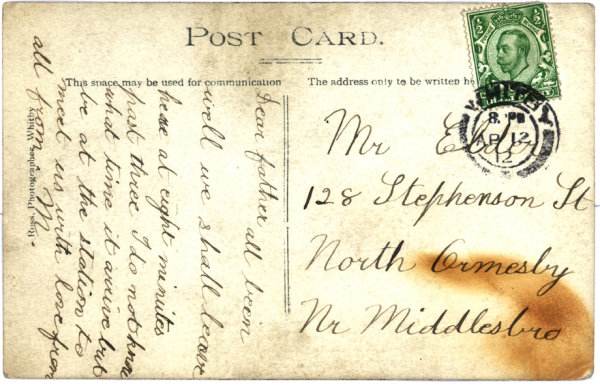 POST CARD.
This space may be used for communication
The address only to be written he
½ ½
WHITBY
8. PM
AP 12
12
Mr
128 Stephenson St
North Ormesby
Nr Middlesbro
Dear father all been
well we shall leave
here at eight minutes
past three I do not know
what time it arrive but
be at the station to
meet us with love from
all from M
Ross, Photographer, Whitby.